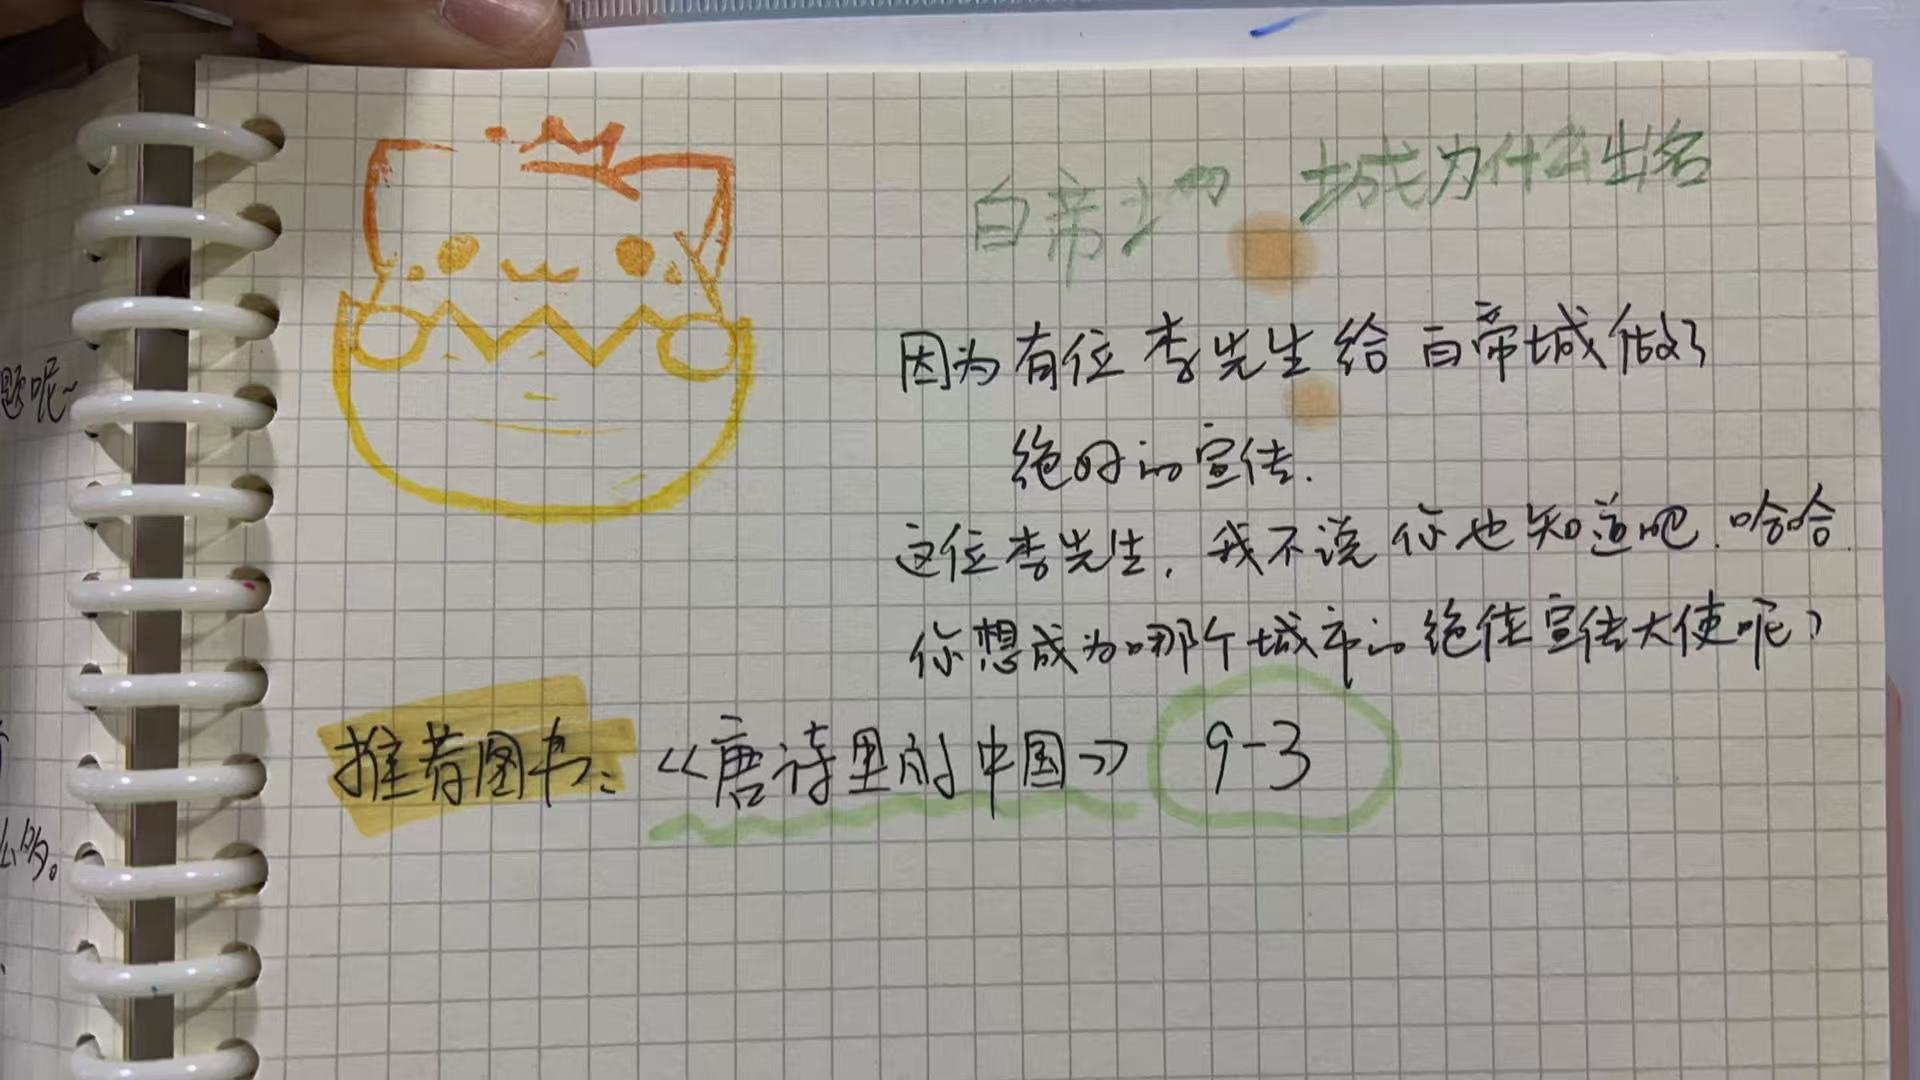 白帝城为什么出名
因为有位李先生给白帝城做了
绝好的宣传.
这位李先生,我不说你也知道吧.哈哈.
你想成为哪个城市的绝佳宣传大使呢?
推荐图书:《唐诗里的中国》 9-3
题呢~
么多。